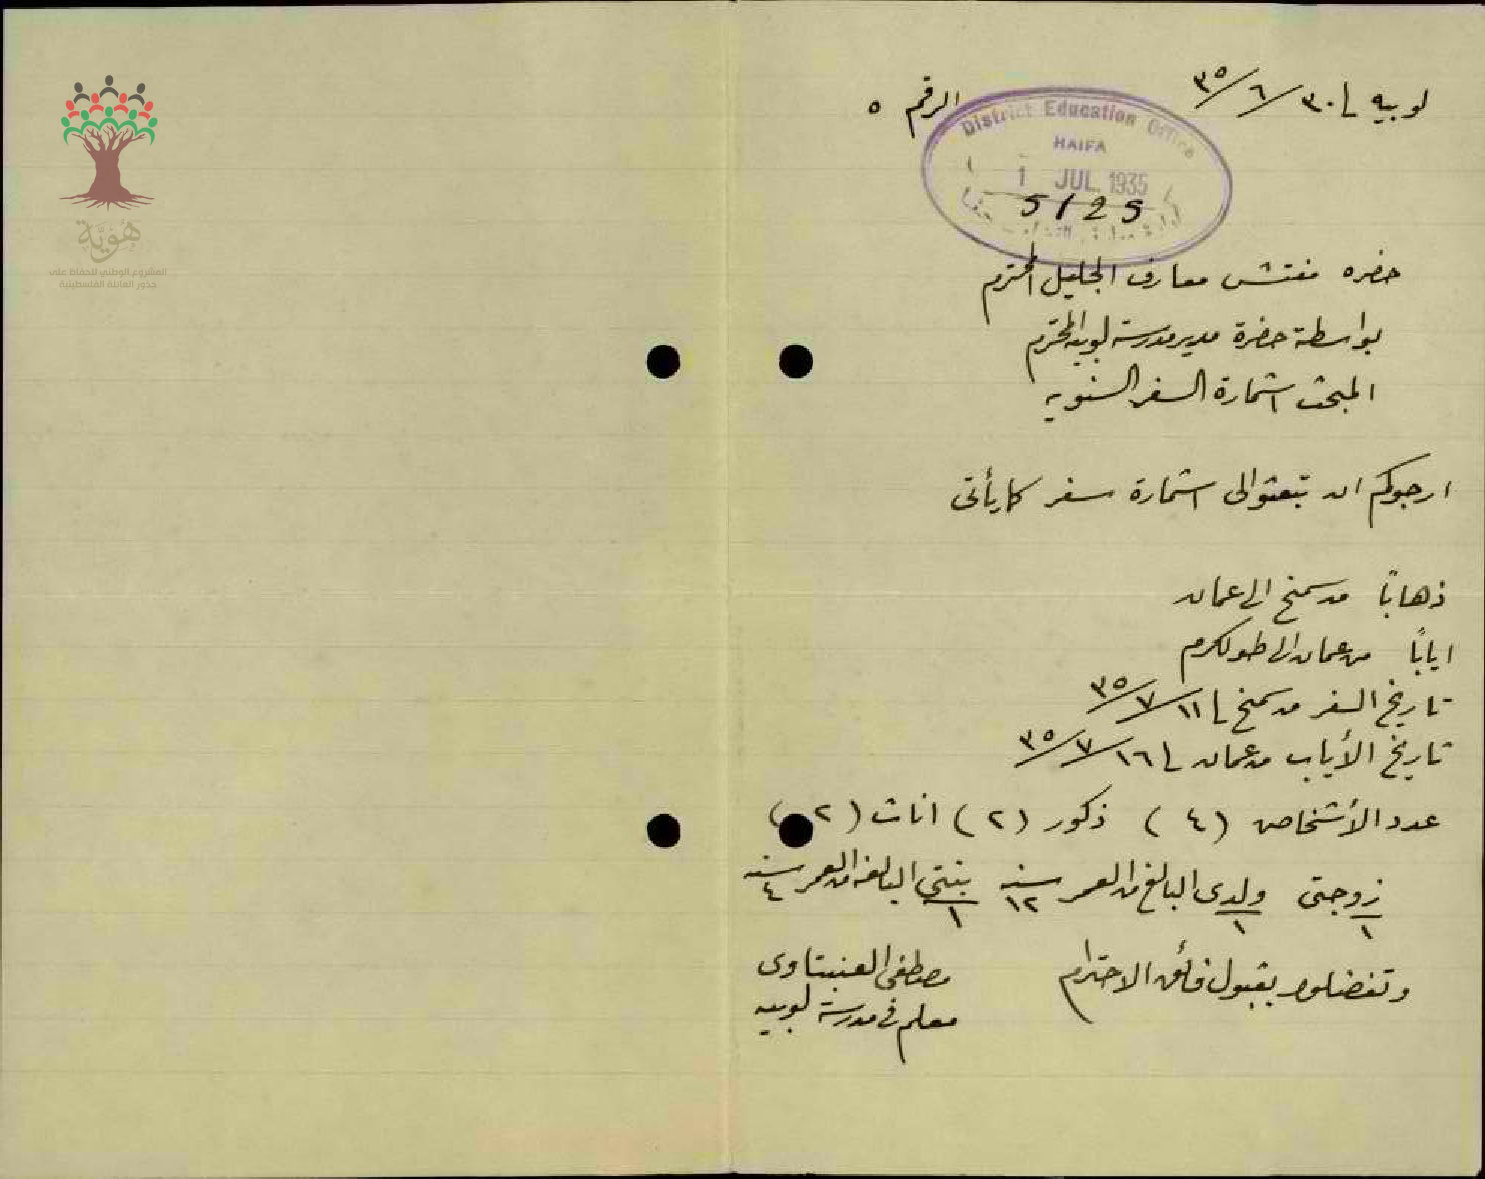 لوبيه في ٣٠/٦/٣٥
الرقم ٥
District Education Office
HAIFA
1 JUL 1935
5125
حضره مفتش معارف الجليل المحترم
بواسطة حضرة مدير مدرسة لوبيه المحترم
المبحث استمارة السفر السنويه
ارجوكم ان تبعثوا لى استمارة سفر كما يأتى
ذهابًا من سمخ الى عمان
ايابًا من عمان الى طولكرم
تاريخ السفر من سمخ في ١١/٧/٣٥
تاريخ الأياب من عمان في ١٦/٧/٣٥
عدد الأشخاص (٤) ذكور (٢) اناث (٢)
زوجتى ولدى البالغ من العمر سنه بنتي البالغه من العمر سنه
١ ١ ١٢ ١ ٤
وتفضلوا بقبول فائق الاحترام
مصطفى العنبتاوى
معلم في مدرسة لوبيه
هَوِيَّة
المشروع الوطني للحفاظ على
جذور العائلة الفلسطينية